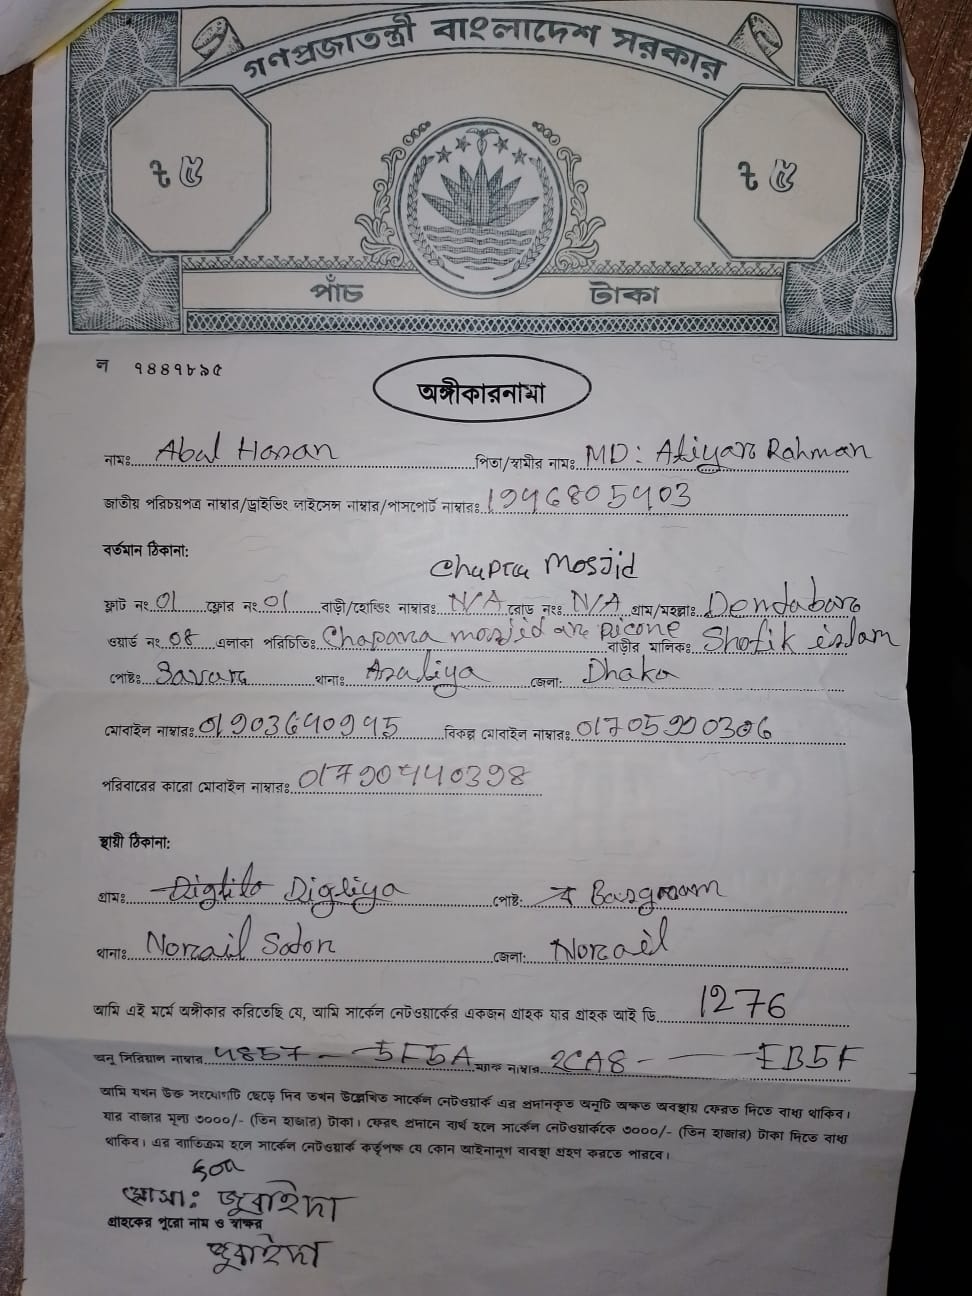 গণপ্রজাতন্ত্রী বাংলাদেশ সরকার
৳ ৫ ৳ ৫
পাঁচ টাকা
ন ৭৪৪৭৮৯৫
অঙ্গীকারনামা
নামঃ Abul Hasan পিতা/স্বামীর নামঃ MD: Atiyar Rahman
জাতীয় পরিচয়পত্র নাম্বার/ড্রাইভিং লাইসেন্স নাম্বার/পাসপোর্ট নাম্বারঃ 1946805403
বর্তমান ঠিকানা:
Chapra Mosjid
ফ্লাট নংঃ 01 ফ্লোর নংঃ 01 বাড়ী/হোল্ডিং নাম্বারঃ N/A রোড নংঃ N/A গ্রাম/মহল্লাঃ Dendabar
ওয়ার্ড নংঃ 08 এলাকা পরিচিতিঃ mosjid বাড়ীর মালিকঃ Shofik islam
পোষ্টঃ Savar থানাঃ Asaliya জেলা: Dhaka
মোবাইল নাম্বারঃ 01903640945 বিকল্প মোবাইল নাম্বারঃ
পরিবারের কারো মোবাইল নাম্বারঃ
স্থায়ী ঠিকানা:
গ্রামঃ Digliya পোষ্ট: Basgram
থানাঃ Norail Sador জেলা: Norail
আমি এই মর্মে অঙ্গীকার করিতেছি যে, আমি সার্কেল নেটওয়ার্কের একজন গ্রাহক যার গ্রাহক আই ডি 1276
অনু সিরিয়াল নাম্বার 4857 - 5F5A ম্যাক নাম্বার 2CA8 - EB5F
আমি যখন উক্ত সংযোগটি ছেড়ে দিব তখন উল্লেখিত সার্কেল নেটওয়ার্ক এর প্রদানকৃত অনুটি অক্ষত অবস্থায় ফেরত দিতে বাধ্য থাকিব।
যার বাজার মূল্য ৩০০০/- (তিন হাজার) টাকা। ফেরৎ প্রদানে ব্যর্থ হলে সার্কেল নেটওয়ার্ককে ৩০০০/- (তিন হাজার) টাকা দিতে বাধ্য
থাকিব। এর ব্যতিক্রম হলে সার্কেল নেটওয়ার্ক কর্তৃপক্ষ যে কোন আইনানুগ ব্যবস্থা গ্রহণ করতে পারবে।
জুবাইদা
গ্রাহকের পুরো নাম ও স্বাক্ষর
জুবাইদা